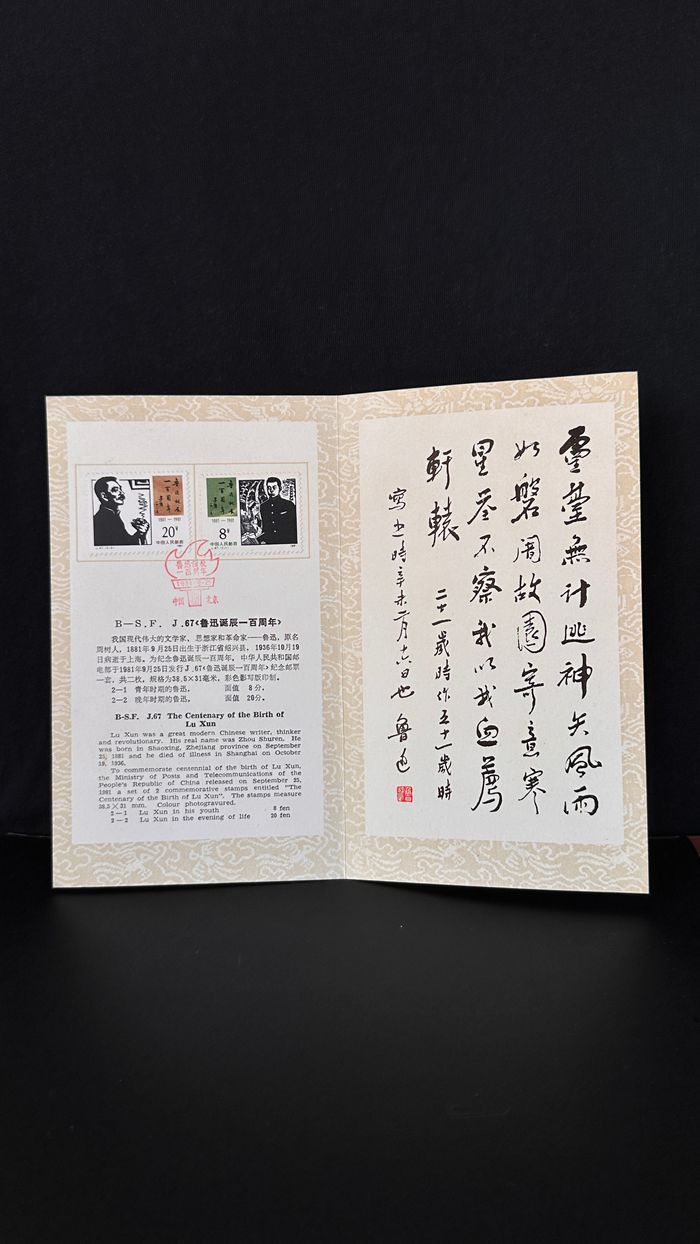 1881—1981
20分
中国人民邮政
1881—1981
8分
中国人民邮政
鲁迅诞辰
一百周年
中国 北京
B—S.F. J.67《鲁迅诞辰一百周年》
我国现代伟大的文学家、思想家和革命家——鲁迅，原名
周树人，1881年9月25日出生于浙江省绍兴县，1936年10月19
日病逝于上海。为纪念鲁迅诞辰一百周年，中华人民共和国邮
电部于1981年9月25日发行J.67《鲁迅诞辰一百周年》纪念邮票
一套，共二枚，规格为38.5×31毫米，彩色影写版印制。
2—1 青年时期的鲁迅， 面值 8分。
2—2 晚年时期的鲁迅， 面值 20分。
B-S.F. J.67 The Centenary of the Birth of
Lu Xun
Lu Xun was a great modern Chinese writer, thinker
and revolutionary. His real name was Zhou Shuren. He
was born in Shaoxing, Zhejiang province on September
25, 1881 and he died of illness in Shanghai on October
19, 1936.
To commemorate centennial of the birth of Lu Xun,
the Ministry of Posts and Telecommunications of the
People's Republic of China released on September 25,
1981 a set of 2 commemorative stamps entitled "The
Centenary of the Birth of Lu Xun". The stamps measure
38.5×31 mm. Colour photogravured.
2—1 Lu Xun in his youth 8 fen
2—2 Lu Xun in the evening of life 20 fen
靈臺無計逃神矢風雨
如磐闇故園寄意寒
星荃不察我以我血薦
軒轅
二十一歲時作五十一歲時
寫之時辛未二月十六日也 魯迅